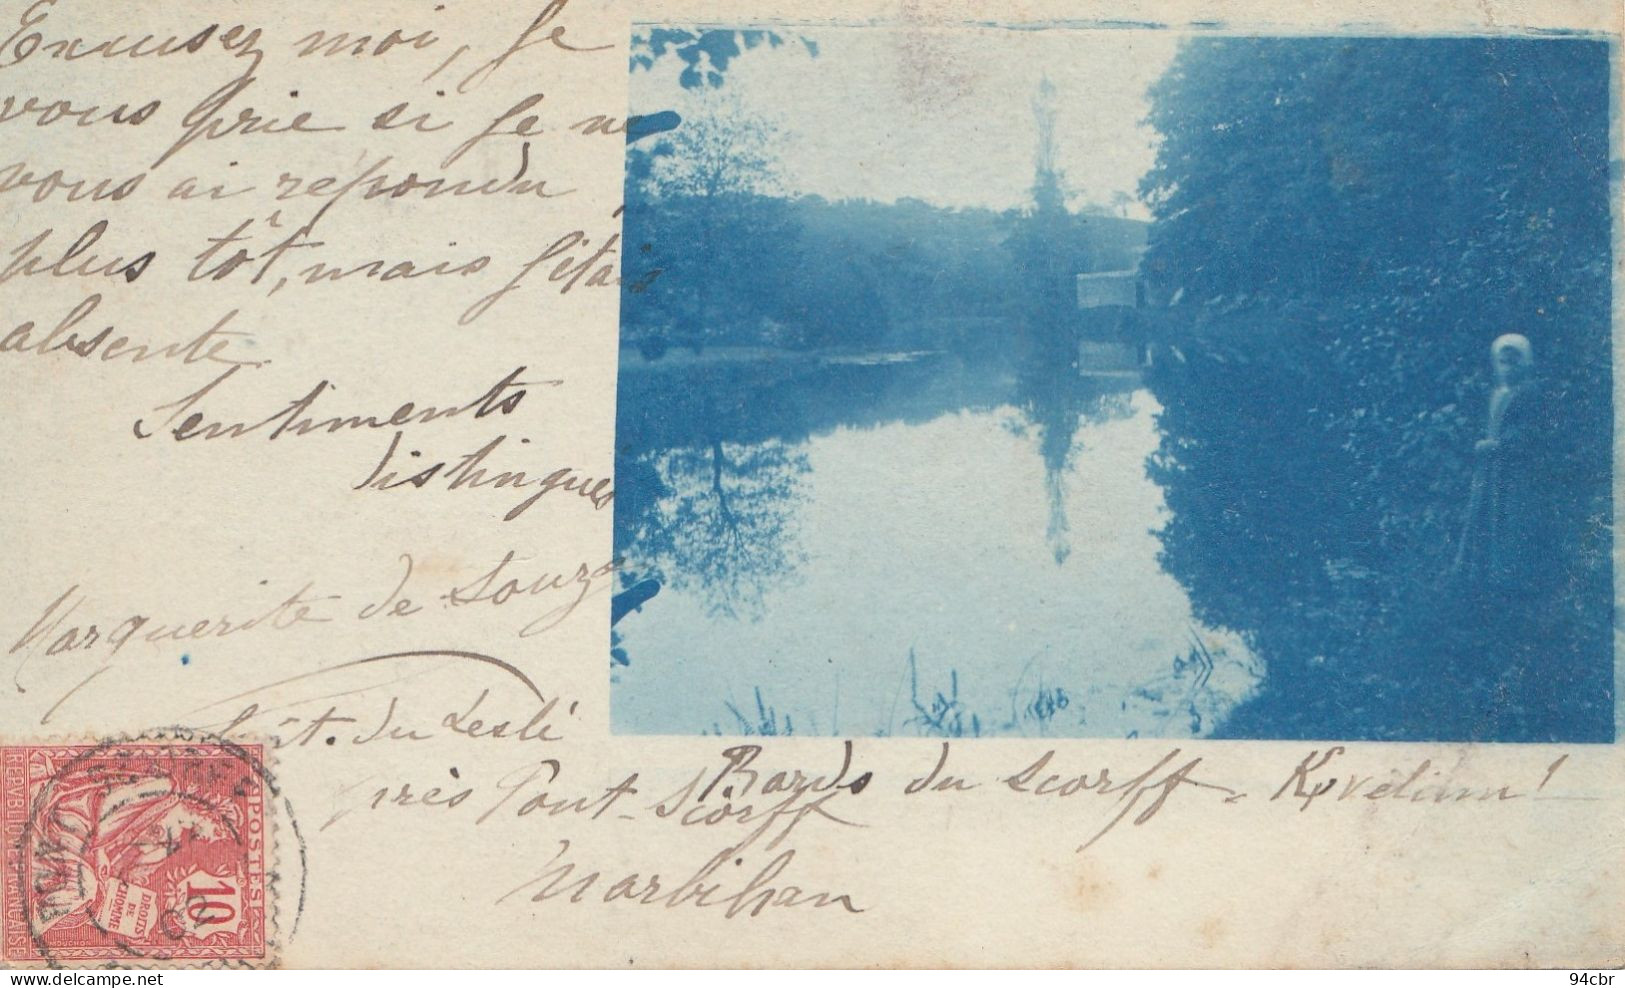 Excusez moi, Je
vous prie si Je ne
vous ai répondu
plus tôt, mais J'étais
absente
Sentiments
distingués
Marguerite de Souza
du Leslé
près Pont-Scorff
Morbihan
Bords du Scorff -
REPVBLIQVE FRANÇAISE
POSTES
10
DROITS
DE
L'HOMME
PONT-SCORFF
94cbr
www.delcampe.net